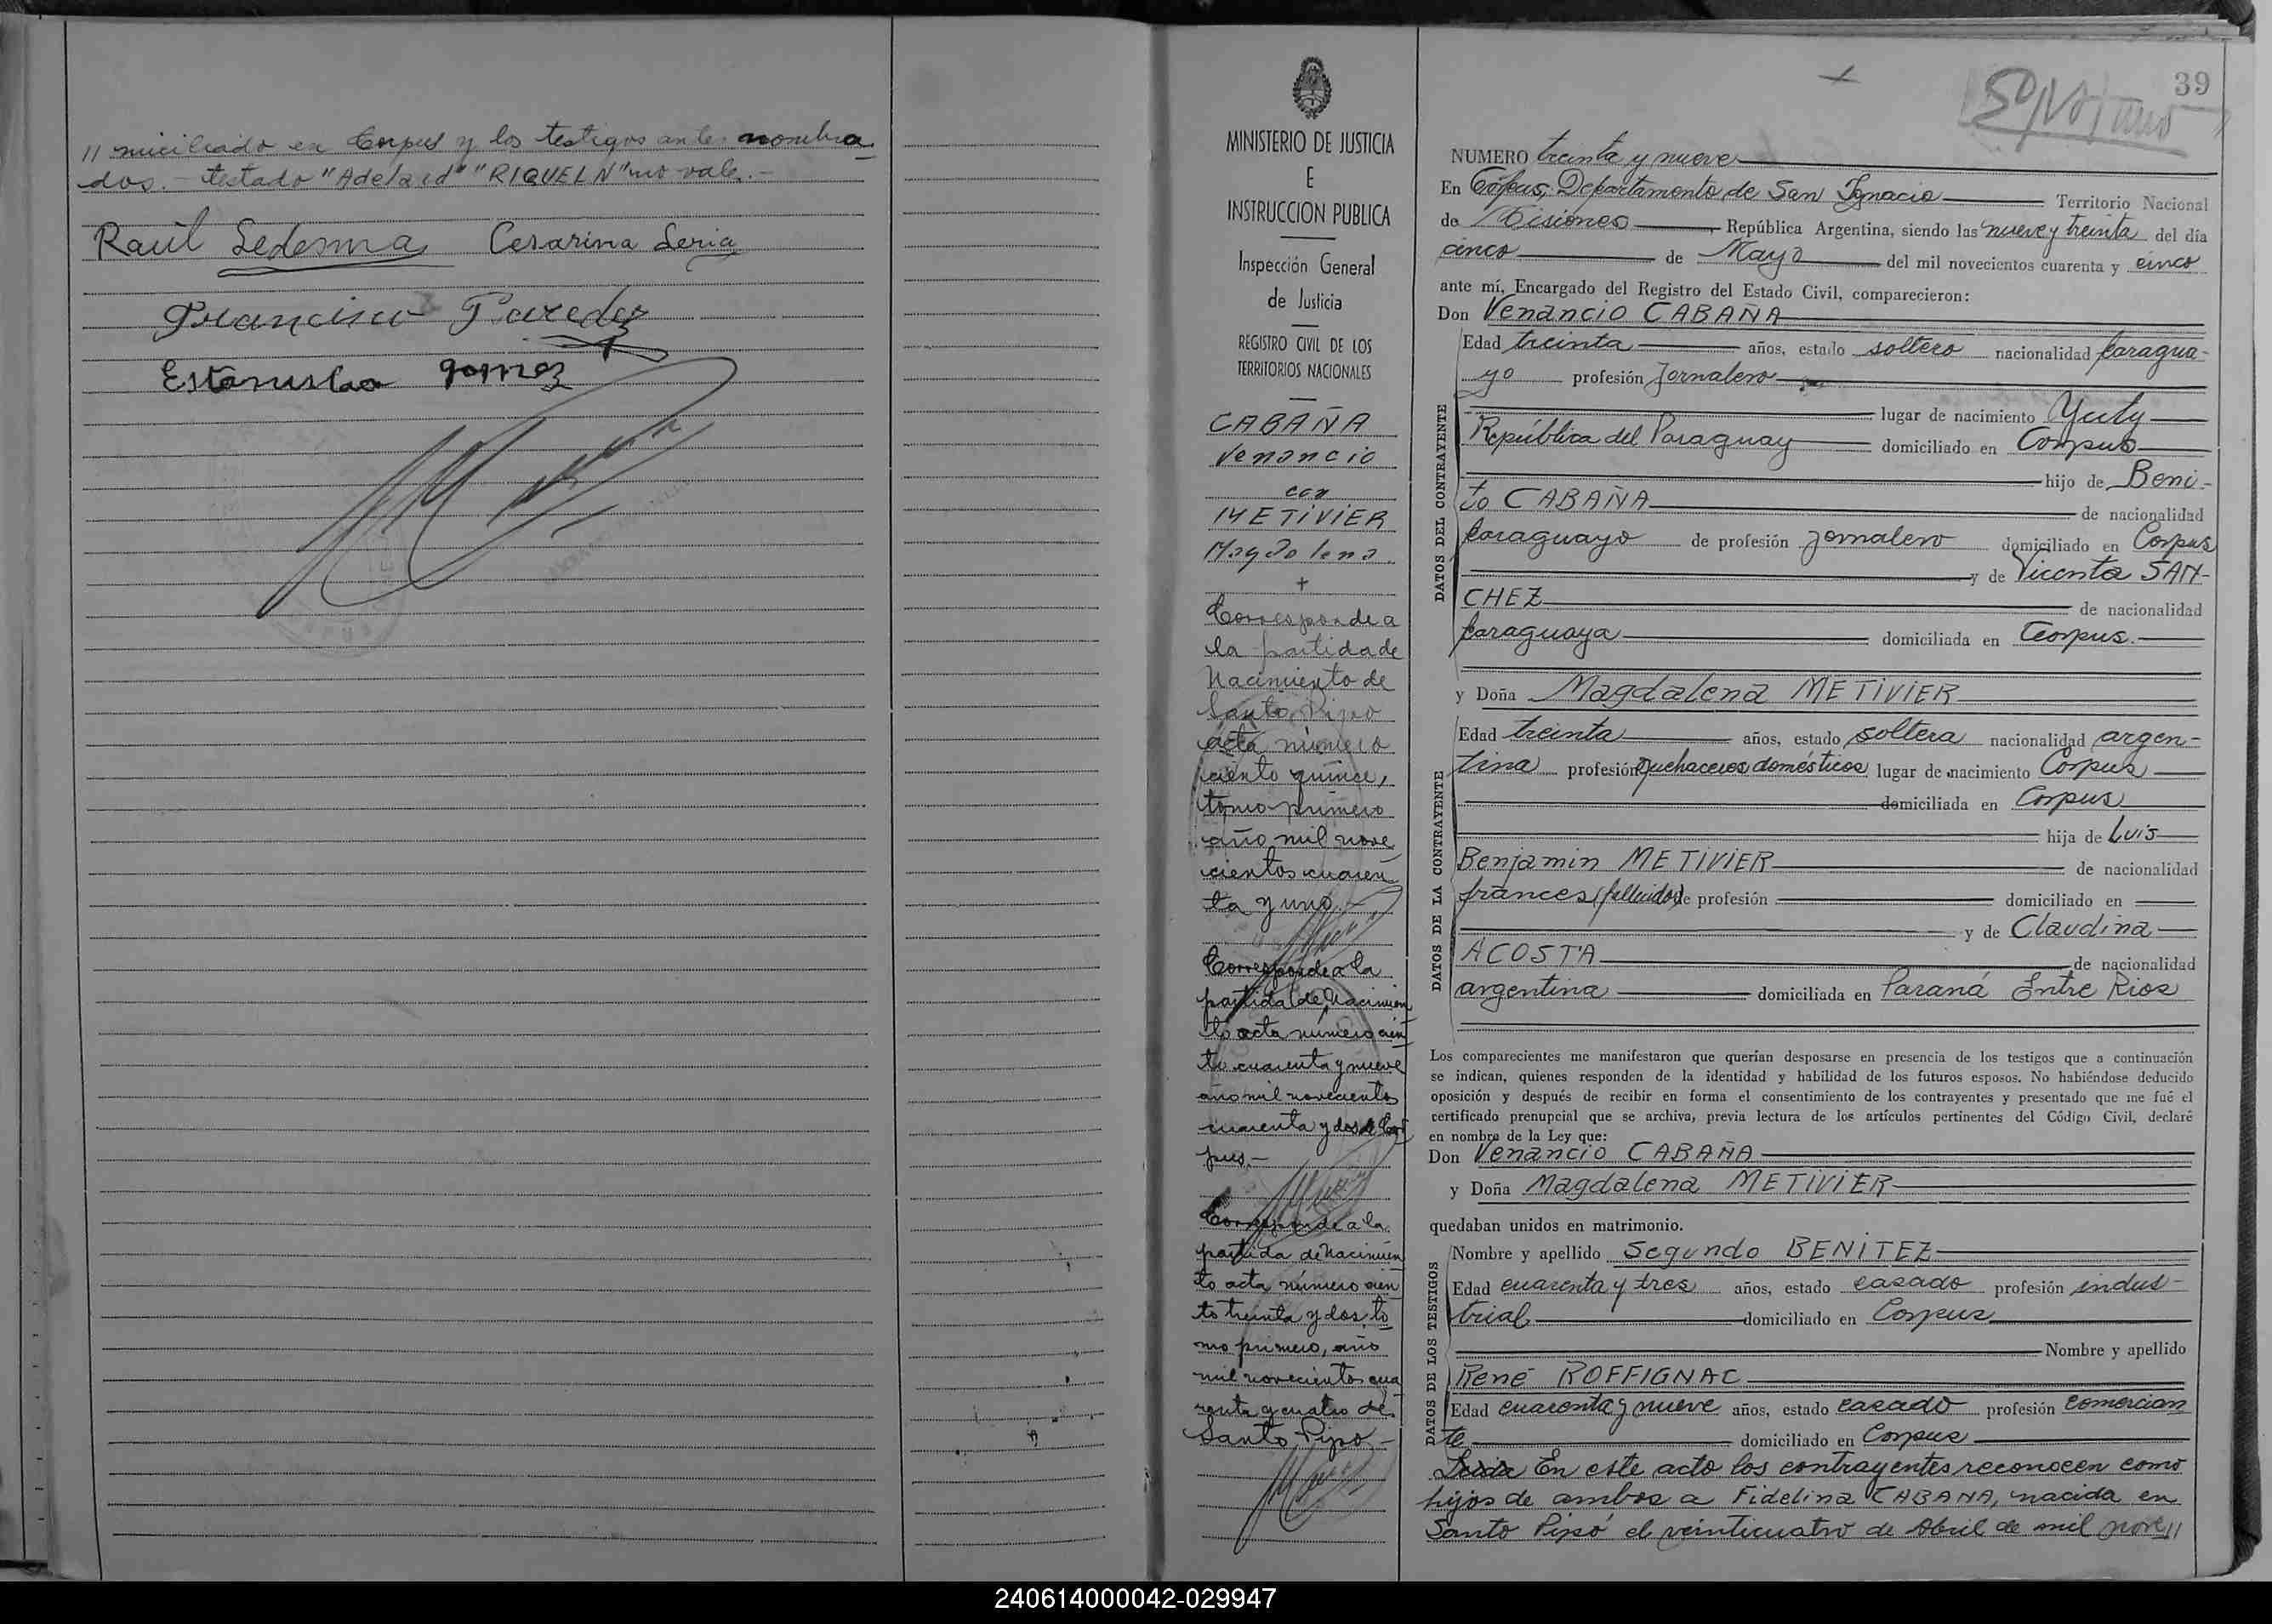 // miciliado en Corpus y los testigos antes nombra
dos.- testado "Adelaid" "RIQUELN" no vale.-
Raúl Ledesma Cesarina Leria
Francisco Paredes
Estanislao gomez
MINISTERIO DE JUSTICIA
E
INSTRUCCION PUBLICA
Inspección General
de Justicia
REGISTRO CIVIL DE LOS
TERRITORIOS NACIONALES
CABAÑA
Venancio
con
METIVIER
Magdalena
+
Corresponde a
la partida de
Nacimiento de
Santo Pipo
acta número
ciento quince,
tomo primero
año mil nove
cientos cuaren
ta y uno.-
Corresponde a la
partida de Nacimien
to acta número cien
to cuarenta y nueve
año mil novecientos
cuarenta y dos de Cor
pus.-
Corresponde a la
partida de Nacimien
to acta número cien
to treinta y dos, to
mo primero, año
mil novecientos cua
renta y cuatro de
Santo Pipo.-
39
NUMERO treinta y nueve
En Corpus, Departamento de San Ignacio Territorio Nacional
de Misiones República Argentina, siendo las nueve y treinta del día
cinco de Mayo del mil novecientos cuarenta y cinco
ante mí, Encargado del Registro del Estado Civil, comparecieron:
Don Venancio CABAÑA
DATOS DEL CONTRAYENTE
Edad treinta años, estado soltero nacionalidad paragua-
yo profesión Jornalero
lugar de nacimiento Yuty
República del Paraguay domiciliado en Corpus
hijo de Beni-
to CABAÑA de nacionalidad
paraguayo de profesión jornalero domiciliado en Corpus
y de Vicenta SAN-
CHEZ de nacionalidad
paraguaya domiciliada en Corpus.
y Doña Magdalena METIVIER
DATOS DE LA CONTRAYENTE
Edad treinta años, estado soltera nacionalidad argen-
tina profesión quehaceres domésticos lugar de nacimiento Corpus
domiciliada en Corpus
hija de Luis
Benjamin METIVIER de nacionalidad
frances (fallecido) de profesión domiciliado en
y de Claudina
ACOSTA de nacionalidad
argentina domiciliada en Paraná Entre Rios
Los comparecientes me manifestaron que querían desposarse en presencia de los testigos que a continuación
se indican, quienes responden de la identidad y habilidad de los futuros esposos. No habiéndose deducido
oposición y después de recibir en forma el consentimiento de los contrayentes y presentado que me fué el
certificado prenupcial que se archiva, previa lectura de los artículos pertinentes del Código Civil, declaré
en nombre de la Ley que:
Don Venancio CABAÑA
y Doña Magdalena METIVIER
quedaban unidos en matrimonio.
DATOS DE LOS TESTIGOS
Nombre y apellido Segundo BENITEZ
Edad cuarenta y tres años, estado casado profesión indus-
trial domiciliado en Corpus
Nombre y apellido
René ROFFIGNAC
Edad cuarenta y nueve años, estado casado profesión comercian
te domiciliado en Corpus
En este acto los contrayentes reconocen como
hijos de ambos a Fidelina CABAÑA, nacida en
Santo Pipó el veinticuatro de Abril de mil nove//
240614000042-029947